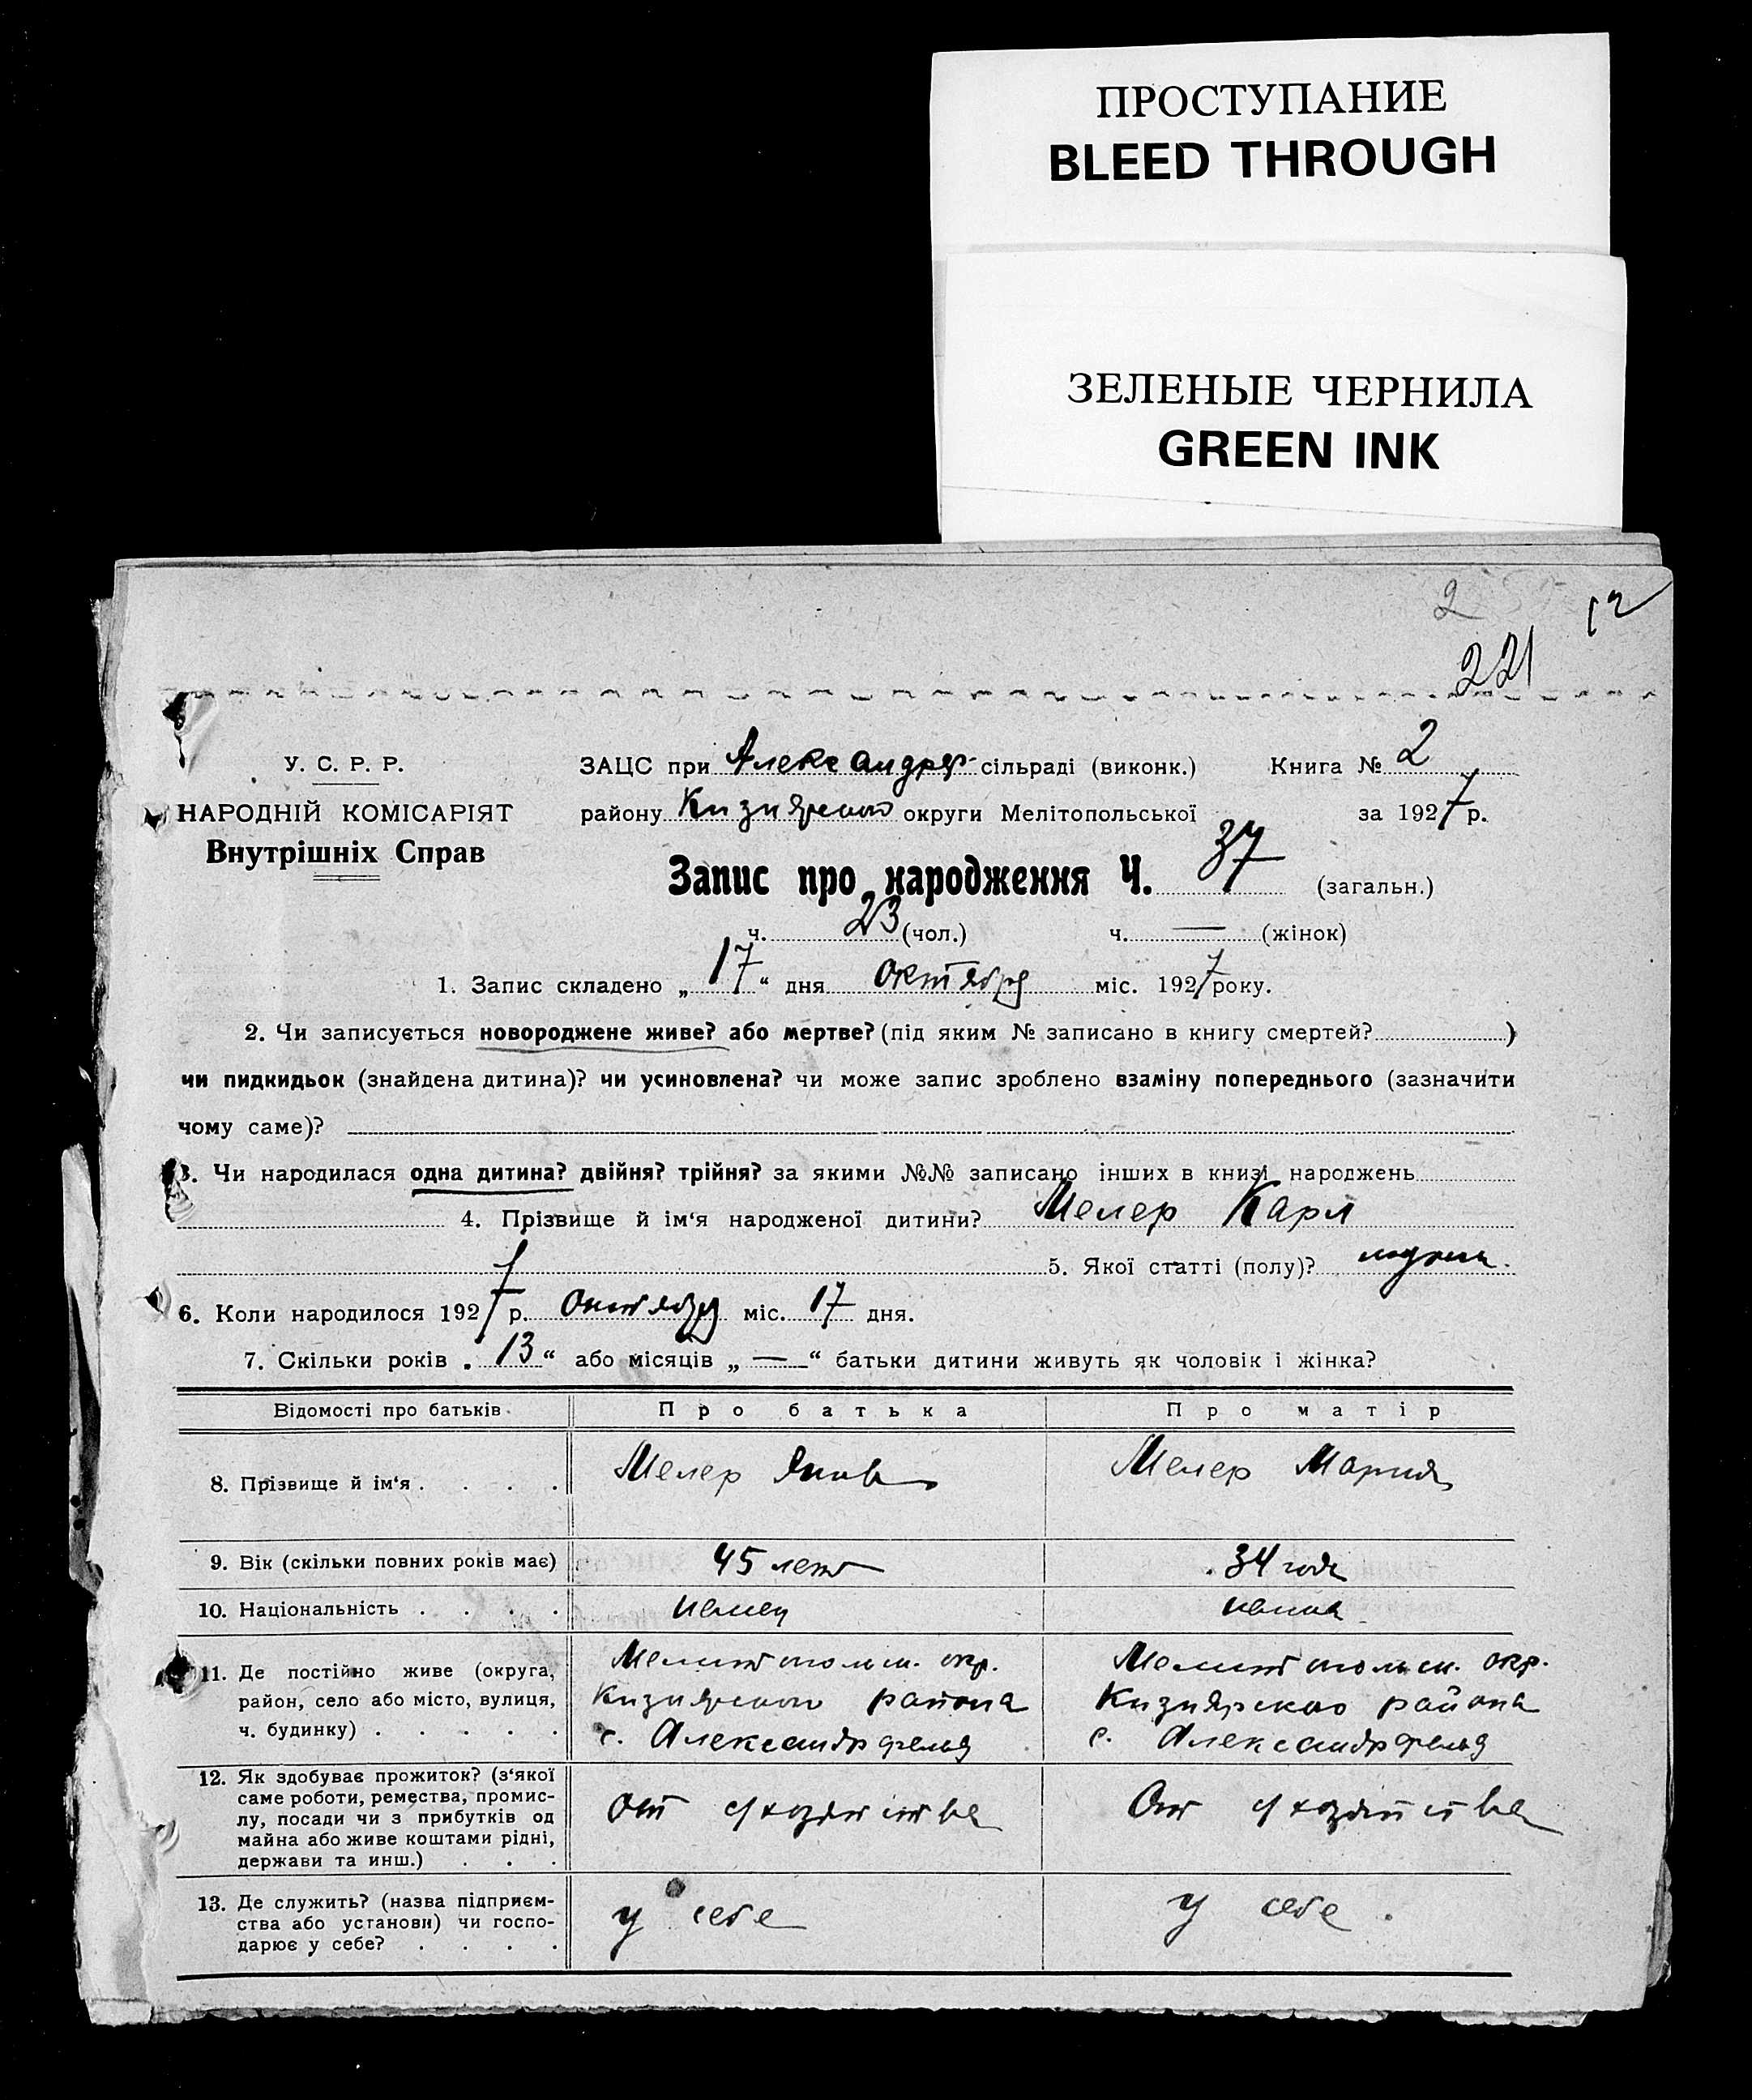 ПРОСТУПАНИЕ
BLEED THROUGH
ЗЕЛЕНЫЕ ЧЕРНИЛА
GREEN INK
2
12
221
У. С. Р. Р.
НАРОДНІЙ КОМІСАРІЯТ
Внутрішніх Справ
ЗАЦС при Александрф- сільраді (виконк.) Книга № 2
району Кизиярского округи Мелітопольської за 1927 р.
Запис про народження Ч. 37 (загальн.)
ч. 23 (чол.) ч. — (жінок)
1. Запис складено „ 17 “ дня октября міс. 1927 року.
2. Чи записується новороджене живе? або мертве? (під яким № записано в книгу смертей? )
чи пидкидьок (знайдена дитина)? чи усиновлена? чи може запис зроблено взаміну попереднього (зазначити
чому саме)?
3. Чи народилася одна дитина? двійня? трійня? за якими №№ записано інших в книзі народжень
4. Прізвище й ім‘я народженої дитини? Мелер Карл
5. Якої статті (полу)? мужск.
6. Коли народилося 1927 р. Октября міс. 17 дня.
7. Скільки років „ 13 “ або місяців „ — “ батьки дитини живуть як чоловік і жінка?
Відомості про батьків Про батька Про матір
8. Прізвище й ім‘я . . . . Мелер Яков Мелер Мария
9. Вік (скільки повних років має) 45 лет 34 года
10. Національність . . . . немец немка
11. Де постійно живе (округа,
район, село або місто, вулиця,
ч. будинку) . . . . .
Мелитопольск. окр.
Кизиярского района
с. Александрфельд
Мелитопольск. окр.
Кизиярскаго района
с. Александрфельд
12. Як здобуває прожиток? (з‘якої
саме роботи, ремества, промис-
лу, посади чи з прибутків од
майна або живе коштами рідні,
держави та инш.) . . .
От с/хозяйства
От с/хозяйства
13. Де служить? (назва підприєм-
ства або установи) чи госпо-
дарює у себе? . . . .
у себе
у себе.